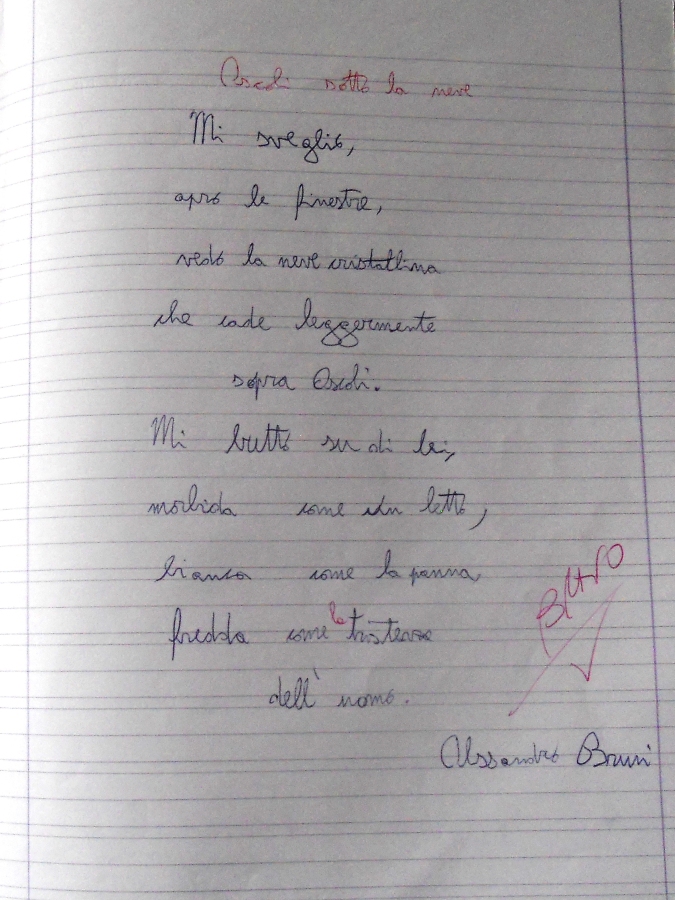 Ascoli sotto la neve
Mi sveglio,
apro le finestre,
vedo la neve cristallina
che cade leggermente
sopra Ascoli.
Mi butto su di lei,
morbida come un letto,
bianca come la panna,
fredda come la tristezza
dell'uomo.
Bravo
Alssandro Bruni